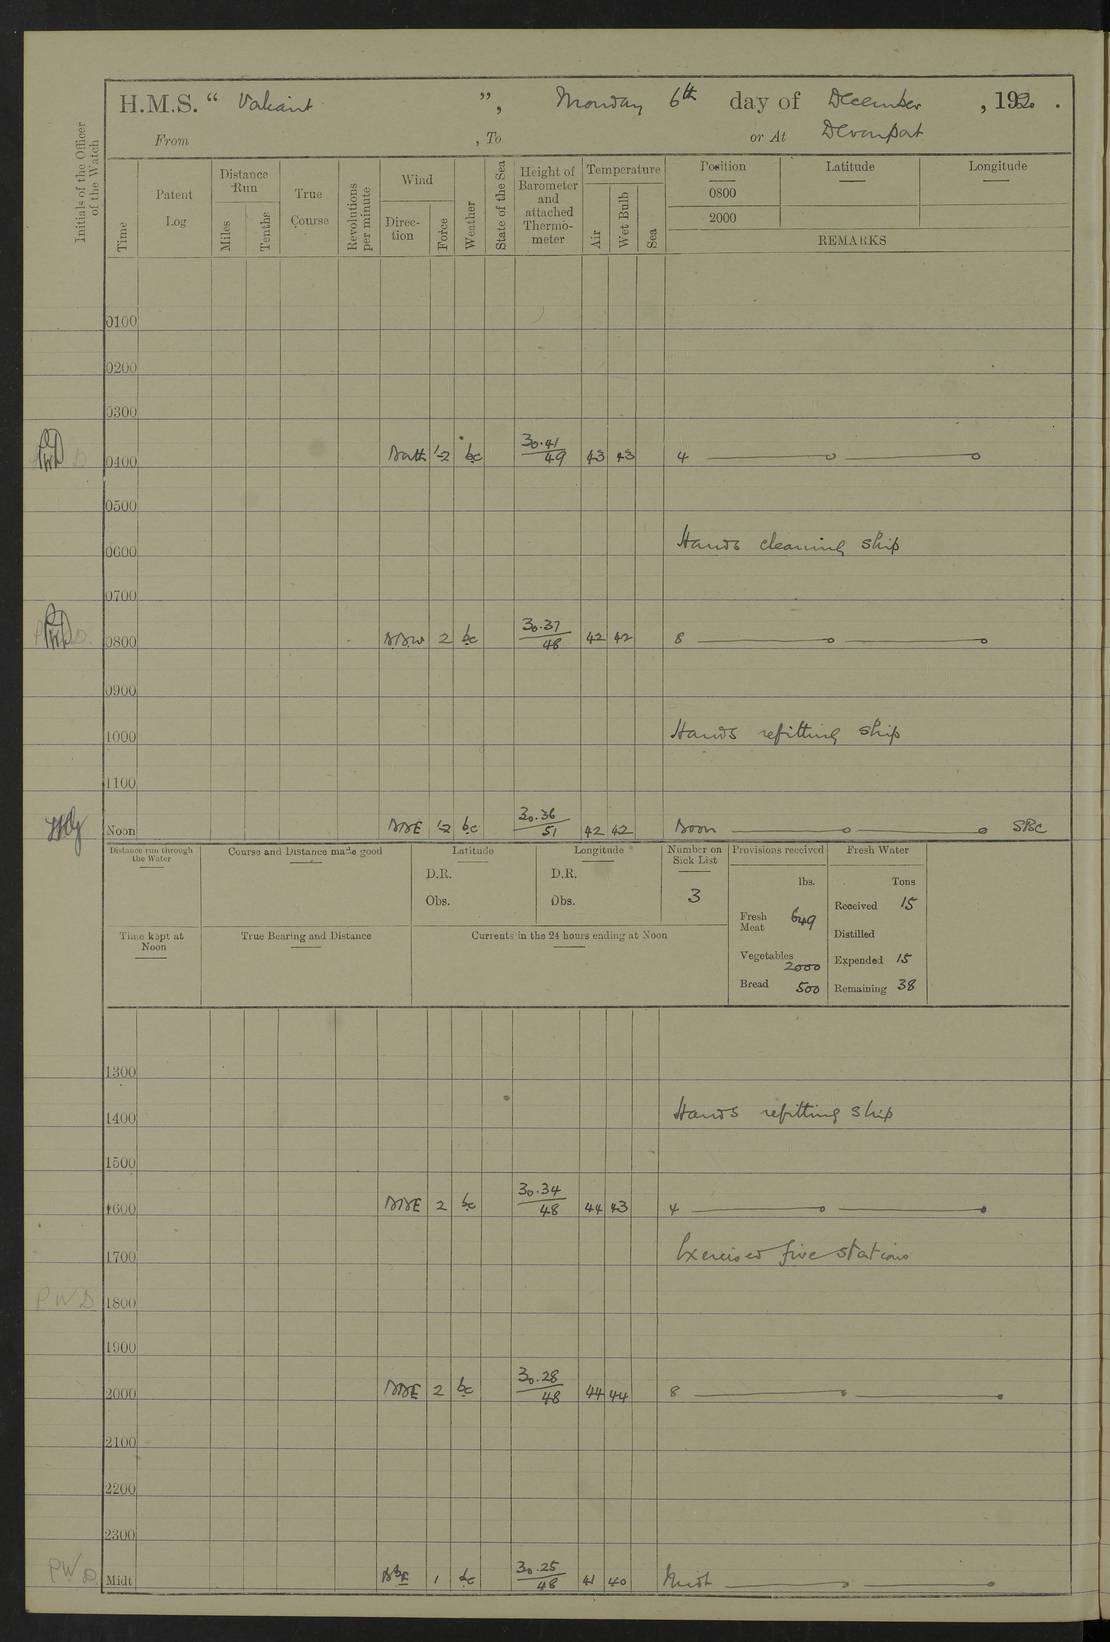 H.M.S. “ Valiant ”, Monday 6th day of December , 1920 .
From , To or At Devonport
Initials of the Officer of the Watch
Time
Patent Log
Distance Run
Miles
Tenths
True Course
Revolutions per minute
Wind
Direction
Force
Weather
State of the Sea
Height of Barometer and attached Thermometer
Temperature
Air
Wet Bulb
Sea
Position Latitude Longitude
0800
2000
REMARKS
0100
0200
0300
0400 North 1-2 bc 30.41/49 43 43 4
0500
0600 Hands cleaning ship
0700
0800 NNW 2 bc 30.37/48 42 42 8
0900
1000 Hands refitting ship
1100
Noon NNE 1-2 bc 30.36/51 42 42 Noon
Distance run through the Water
Course and Distance made good
Latitude
D.R.
Obs.
Longitude
D.R.
Obs.
Number on Sick List
3
Provisions received
lbs.
Fresh Meat 649
Vegetables 2000
Bread 500
Fresh Water
Tons
Received 15
Distilled
Expended 15
Remaining 38
Time kept at Noon
True Bearing and Distance
Currents in the 24 hours ending at Noon
1300
1400 Hands refitting ship
1500
1600 NNE 2 bc 30.34/48 44 43 4
1700 Exercised fire stations
P W D
1800
1900
2000 NNE 2 bc 30.28/48 44 44 8
2100
2200
2300
PWD Midt NbE 1 bc 30.25/48 41 40 Midt